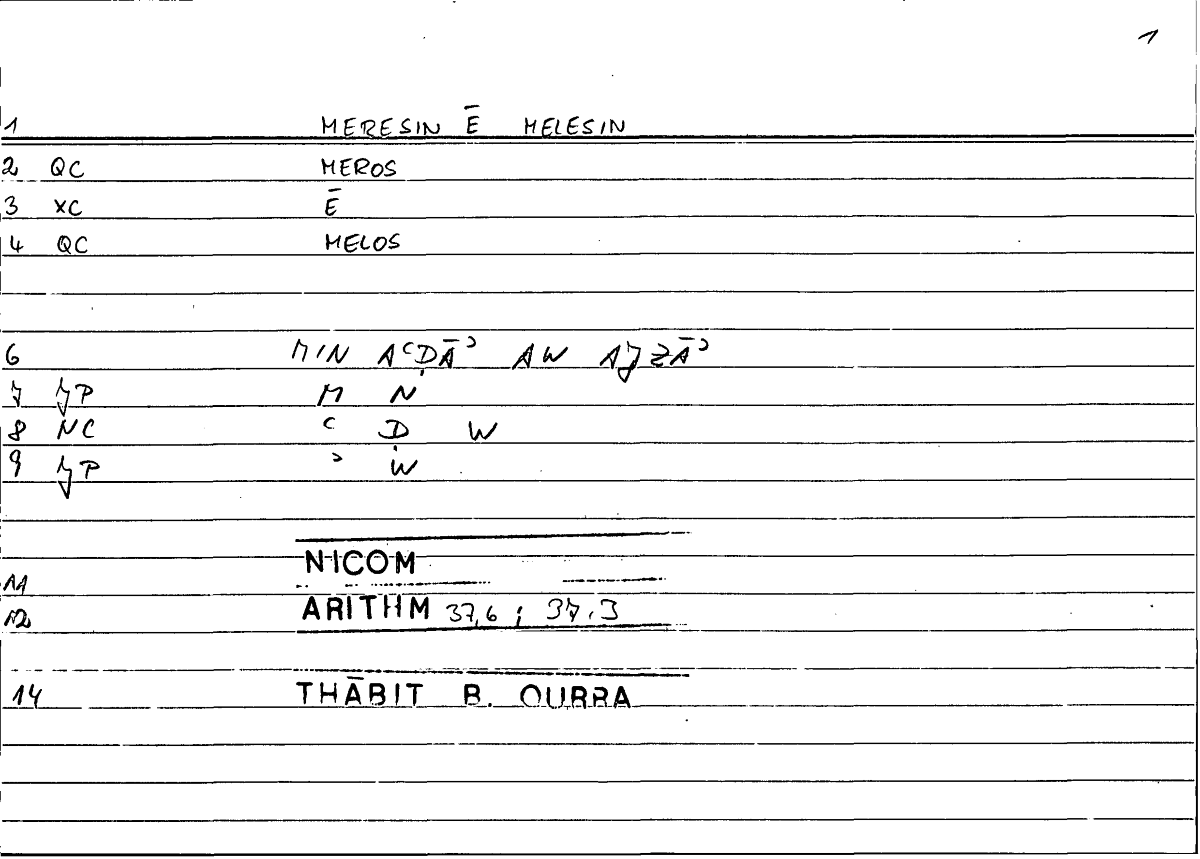 1
1 MERESIN Ē MELESIN
2 QC MEROS
3 XC Ē
4 QC MELOS
6 MIN AʿḌĀʾ AW AJZĀʾ
7 JP M N
8 NC ʿ Ḍ W
9 JP ʾ W
11 NICOM
12 ARITHM 37,6 ; 37,3
14 THĀBIT B. QURRA